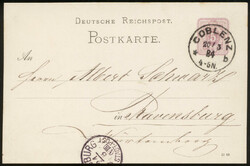 DEUTSCHE REICHSPOST.
POSTKARTE.
COBLENZ
84
4-5N.
An
Herrn Albert Schwarz
in Ravensburg
Würtemberg